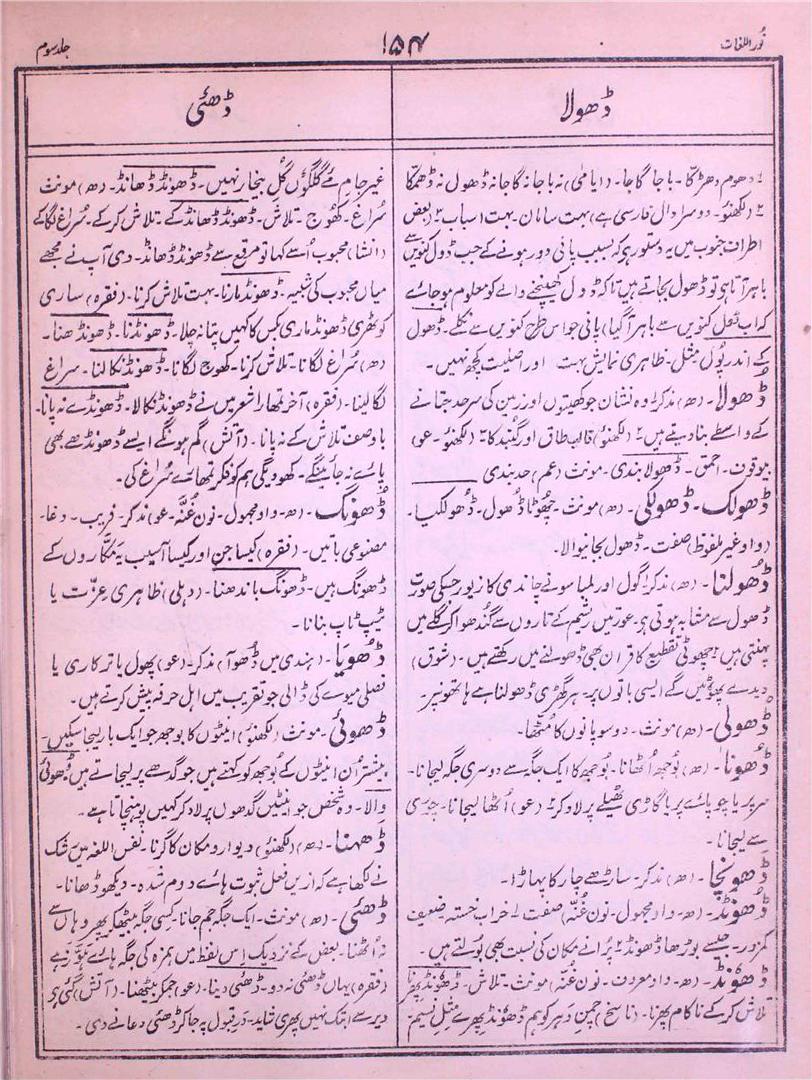 نُور اللغات
۱۵۴
جلد سوم
ڈھولا
ڈھئی
دھوم دھڑکا۔ باجا گاجا۔ (ایامی) نہ باجا نہ گاجا نہ ڈھول نہ ڈھمکا
(لکھنؤ۔ دوسرا دال فارسی ہے) بہت سامان۔ بہت اسباب ۲ (بعض
اطراف جنوب میں یہ دستور ہے کہ بسبب پانی دور ہونے کے جب ڈول کنویں سے
باہر آتا ہے تو ڈھول بجاتے ہیں تاکہ ڈول کھینچنے والے کو معلوم ہو جائے
کہ اب ڈول کنویں سے باہر آ گیا) پانی جو اس طرح کنویں سے نکلے۔ ڈھول
کے اندر پول مثل۔ ظاہری نمایش بہت اور اصلیت کچھ نہیں۔
ڈھولا۔ (ھ) مذکر ۱ وہ نشان جو کھیتوں اور زمین کی سرحد جتانے
کے واسطے بنا دیتے ہیں ۲ (لکھنؤ) قالب طاق اور گنبد کا ۳ (لکھنؤ۔ عو)
بیوقوف۔ احمق۔ ڈھولا بندی۔ مونث (عم) حد بندی
ڈھولک۔ ڈھولکی۔ (ھ) مونث۔ چھوٹا ڈھول۔ ڈھولکیا۔
(واو غیر ملفوظ) صفت۔ ڈھول بجانیوالا۔
ڈھولنا۔ (ھ) مذکر ۱ گول اور لمبا سونے چاندی کا زیور جسکی صورت
ڈھول سے مشابہ ہوتی ہے عورتیں ریشم کے تاروں سے گندھوا کر گلے میں
پہنتی ہیں ۲ چھوٹی تقطیع کا قرآن بھی ڈھولنے میں رکھتے ہیں۔ (شوق)
دیدے پھوٹیں گے ایسی باتوں پر۔ ہر گھڑی ڈھولنا ہے ہاتھونپر۔
ڈھولی۔ (ھ) مونث۔ دو سو پانوں کا مُٹھا۔
ڈھونا۔ (ھ) بُوجھ اُٹھانا۔ بُوجھ کا ایک جگہ سے دوسری جگہ لیجانا۔
سر پر یا چوپائے پر یا گاڑی ٹھیلے پر لاد کر ۲ (عو) اُٹھا لیجانا۔ چوری
سے لیجانا۔
ڈھونچا۔ (ھ) مذکر۔ ساڑھے چار کا پہاڑا۔
ڈھونڈ۔ (ھ۔ واو مجہول۔ نون غُنّہ) صفت ۱ خراب خستہ ضعیف
کمزور۔ جیسے بوڑھا ڈھونڈ ۲ پُرانے مکان کی نسبت بھی بولتے ہیں۔
ڈھونڈ۔ (ھ۔ واو معروف۔ نون غنّہ) مونث۔ تلاش۔ ڈھونڈ پھرنا
تلاش کر کے ناکام پھرنا۔ (ناسخ) چمن دہر کو ہم ڈھونڈ پھرے مثل نسیم۔
غیر جام مئے گلگوں گل بیخار نہیں۔ ڈھونڈ ڈھانڈ۔ (ھ) مونث
سُراغ۔ کھُوج۔ تلاش۔ ڈھونڈ ڈھانڈ کے۔ تلاش کر کے۔ سُراغ لگا کے
(انشا) محبوب اُسے کہا تو مرقع سے ڈھونڈ ڈھانڈ۔ دی آپ نے مجھے
میاں محبوب کی شبیہ۔ ڈھونڈ مارنا۔ بہت تلاش کرنا۔ (فقرہ) ساری
کوٹھری ڈھونڈ ماری کس کا کہیں پتا نہ چلا۔ ڈھونڈنا۔ ڈھونڈھنا۔
(ھ) سُراغ لگانا۔ تلاش کرنا۔ کھُوج لگانا۔ ڈھونڈ نکالنا۔ سراغ
لگا لینا۔ (فقرہ) آخر تمھارا شعر میں نے ڈھونڈ نکالا۔ ڈھونڈے نہ پانا۔
باوصف تلاش کے نہ پانا۔ (آتش) گم ہونگے ایسے ڈھونڈھے بھی
پائے نہ جائینگے۔ کھو دیگی ہم کو فکر تمھارے سُراغ کی۔
ڈھونگ۔ (ھ۔ واو مجہول۔ نون غُنّہ۔ عو) مذکر۔ فریب۔ دغا۔
مصنوعی باتیں۔ (فقرہ) کیسا جن اور کیسا آسیب یہ مکّاروں کے
ڈھونگ ہیں۔ ڈھونگ باندھنا۔ (دہلی) ظاہری عزّت یا
ٹیپ ٹاپ بنانا۔
ڈھویا۔ (ہندی میں ڈھوآ) مذکر۔ (عو) پھول یا ترکاری یا
فصلی میوے کی ڈالی جو تقریب میں اہل حرفہ پیش کرتے ہیں۔
ڈھوئی۔ مونث (لکھنؤ) اینٹوں کا بوجھ جو ایک بار لیجا سکیں۔
بیشتر اُن اینٹوں کے بُوجھ کو کہتے ہیں جو گدھے پر لیجاتے ہیں ڈھوئی
والا۔ وہ شخص جو اینٹیں گدھوں پر لاد کر کہیں پہنچاتا ہے۔
ڈھہنا۔ (ھ) (لکھنؤ) دیوار و مکان کا گرنا۔ نفس اللغہ میں رشک
نے لکھا ہے کہ ازیں فعل ثبوت ہائے دوم شدہ۔ دیکھو ڈھانا۔
ڈھئی۔ (ھ) مونث۔ ایک جگہ جم جانا۔ کسی جگہ بیٹھکر پھر وہاں سے
نہ اُٹھنا۔ بعض کے نزدیک اِس لفظ میں ہمزہ کی جگہ ہائے ہوّز ہے
(فقرہ) یہاں ڈھئی نہ دو۔ ڈھئی دینا۔ (عو) جمکر بیٹھنا۔ (آتش) گئی ہے
دیر سے ابتک نہیں پھری شاید۔ در قبول پہ جا کر ڈھئی دعا نے دی۔